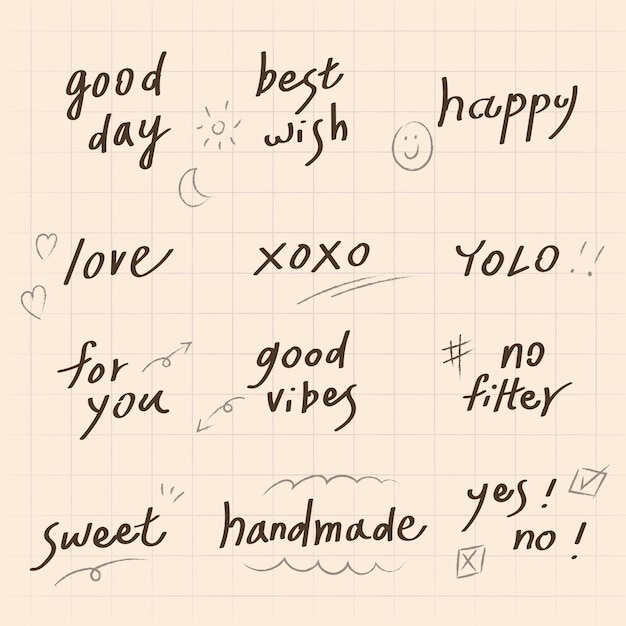 good
day
best
wish
happy
love
xoxo
YOLO!!
for
you
good
vibes
# no
filter
sweet
handmade
yes!
no!